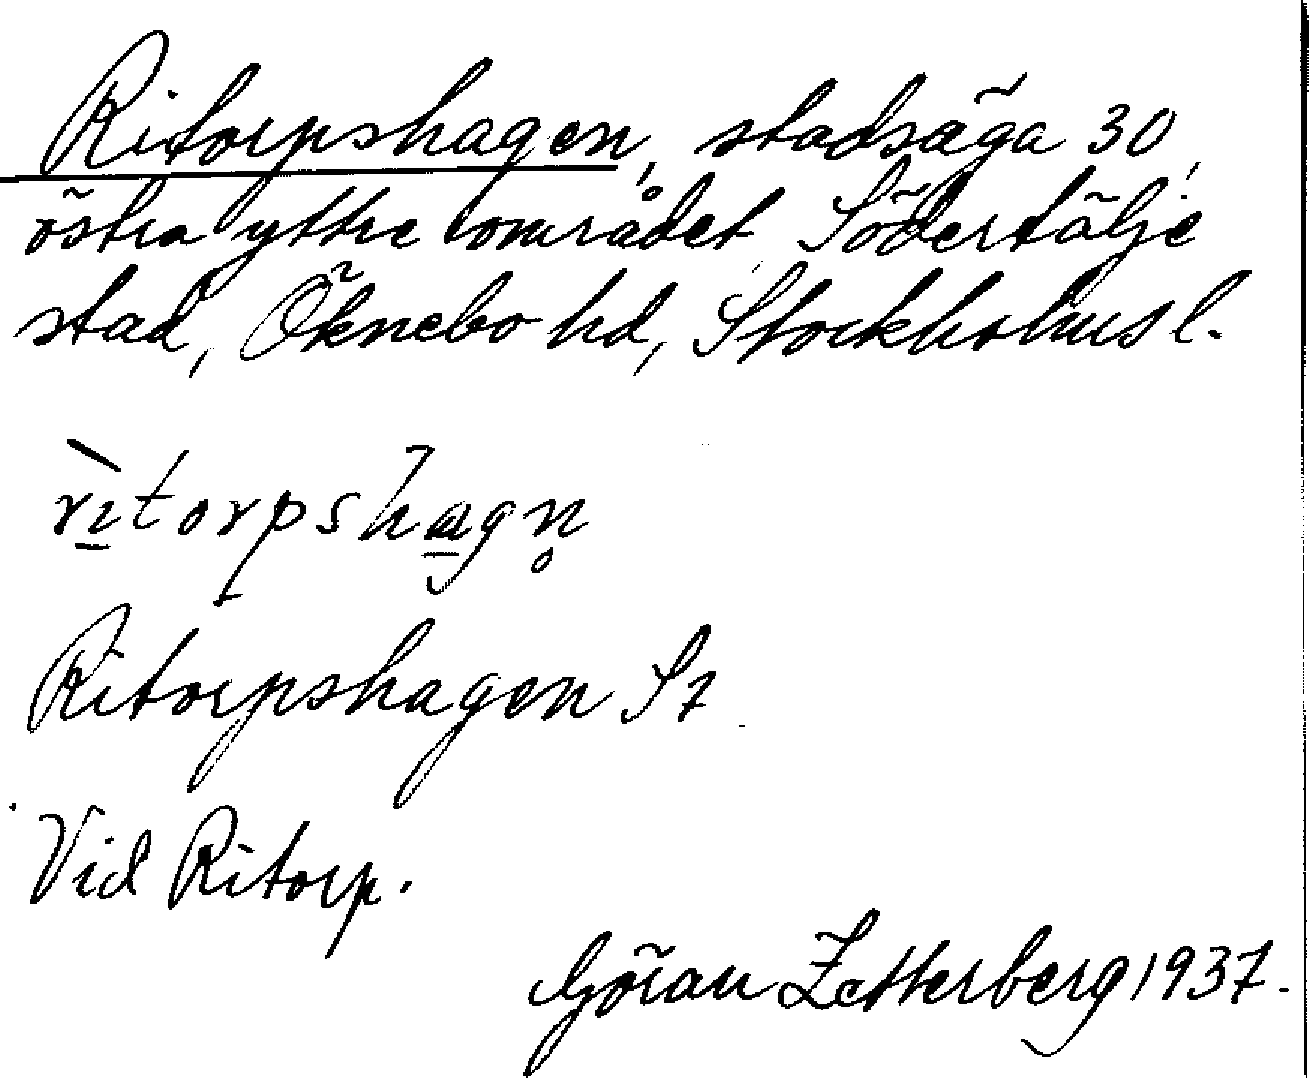 Ritorpshagen, stadsäga 30,
östra yttre området, Södertälje
stad, Öknebo hd, Stockholms l.
rìtorpshagn̥
Ritorpshagen St
Vid Ritorp.
Göran Zetterberg 1937.